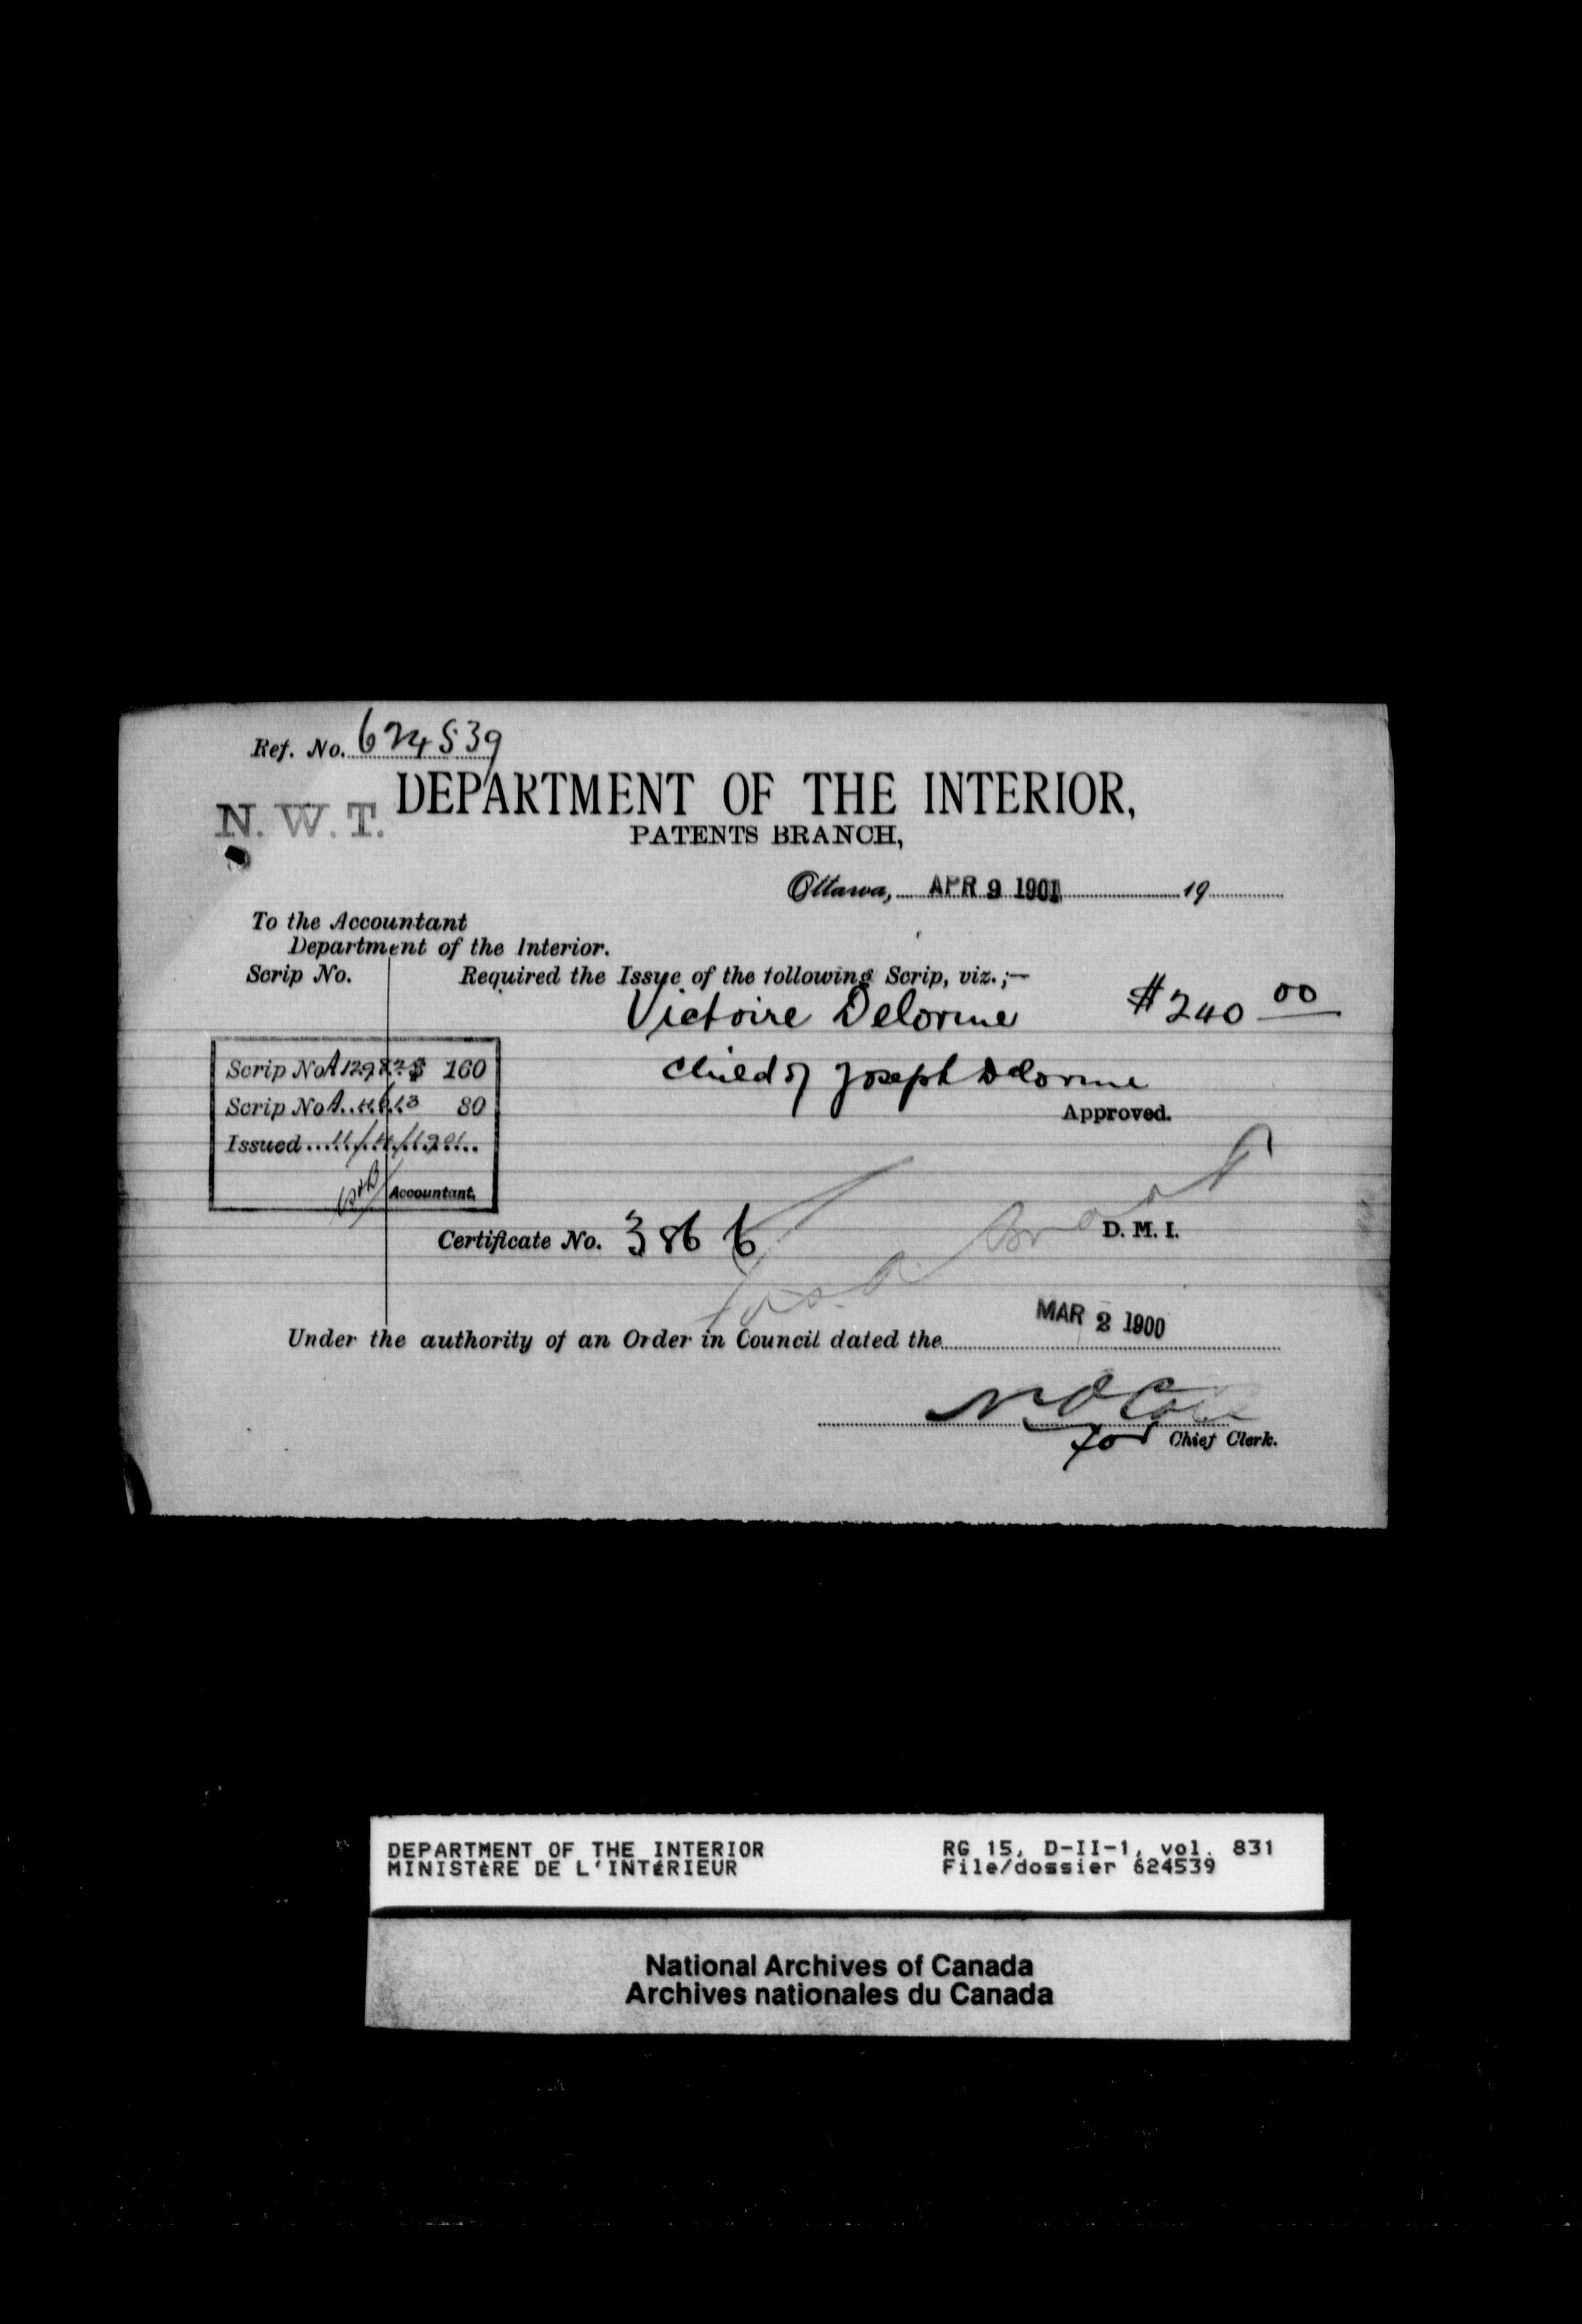 Ref. No. 624539
DEPARTMENT OF THE INTERIOR,
N. W. T.
PATENTS BRANCH,
Ottawa, APR 9 1901 19
To the Accountant
Department of the Interior.
Scrip No. Required the Issue of the following Scrip, viz.;—
Victoire Delorme $240 00
Child of Joseph Delorme
Scrip No A $ 160
Scrip No A 80
Approved.
Issued 11/4/1901
Accountant.
D. M. I.
Certificate No. 3866
Jas. A. Smart
MAR 2 1900
Under the authority of an Order in Council dated the
N O Coté
for Chief Clerk.
DEPARTMENT OF THE INTERIOR RG 15, D-II-1, vol. 831
MINISTÈRE DE L'INTÉRIEUR File/dossier 624539
National Archives of Canada
Archives nationales du Canada